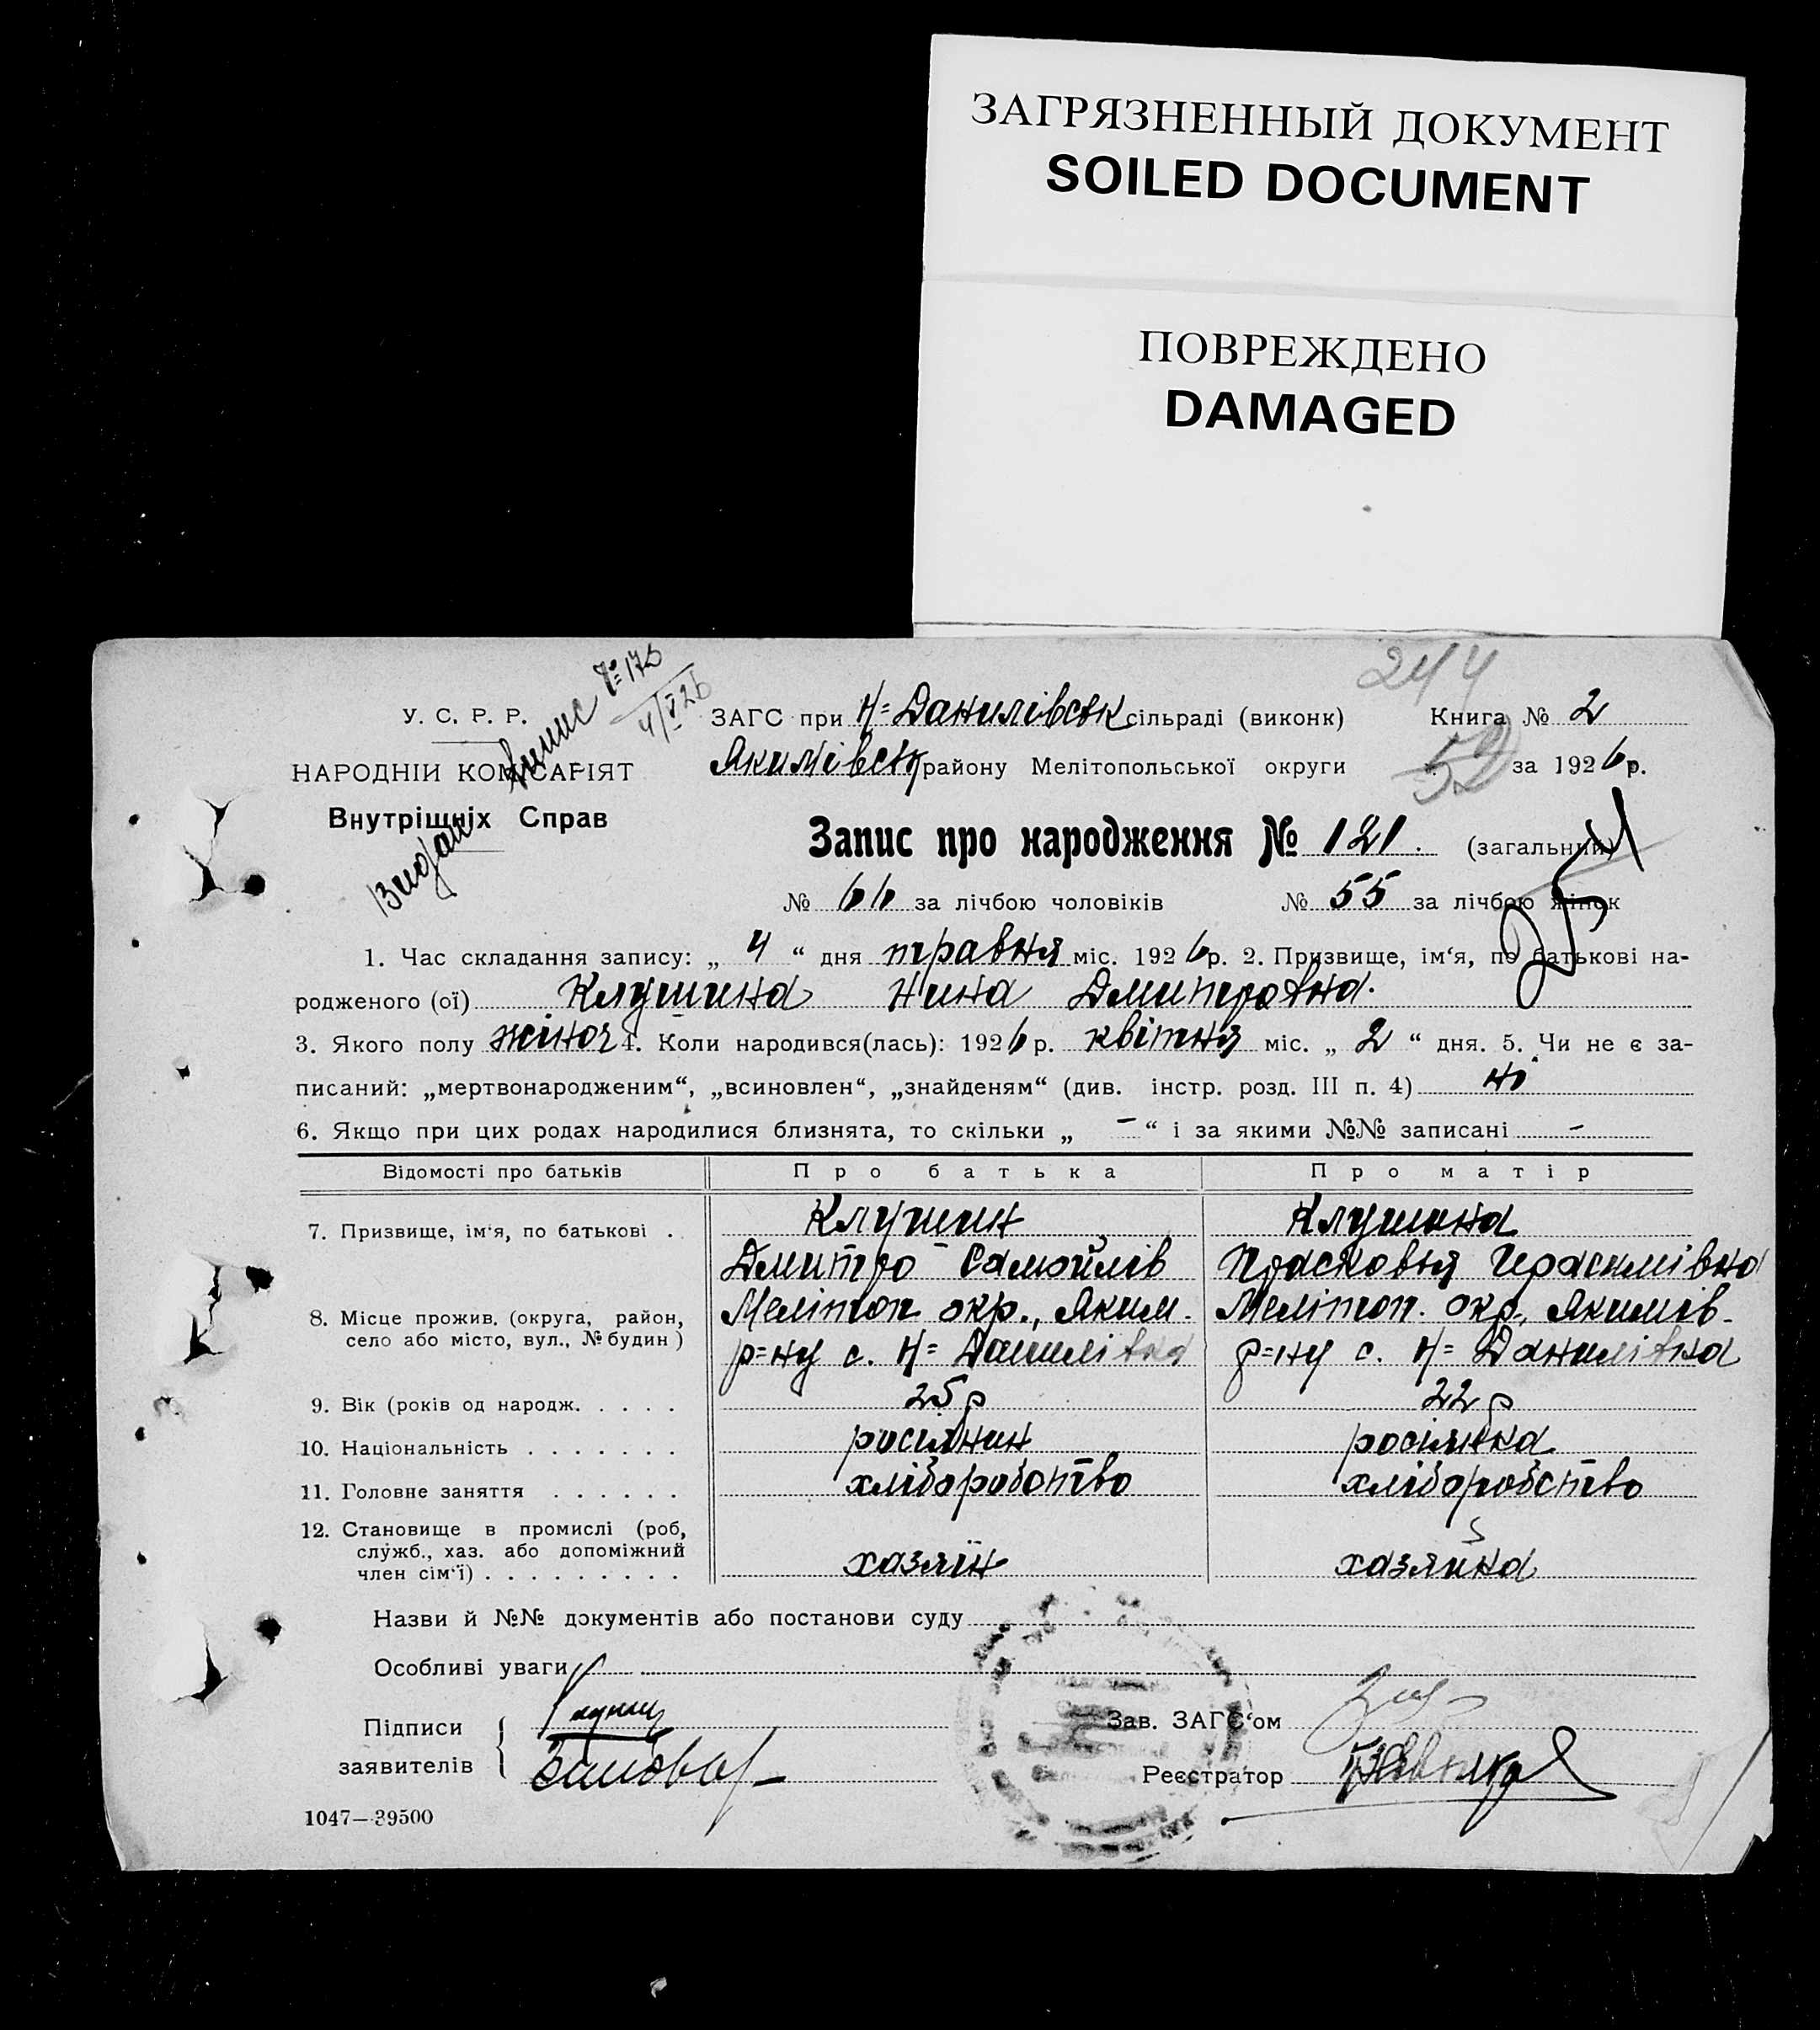 ЗАГРЯЗНЕННЫЙ ДОКУМЕНТ
SOILED DOCUMENT
ПОВРЕЖДЕНО
DAMAGED
244
У. С. Р. Р.
НАРОДНІЙ КОМІСАРІЯТ
Внутрішніх Справ
Видан випис № 175
4/V 26
ЗАГС при Н=Данилівськ сільраді (виконк) Книга № 2
Якимівськ району Мелітопольської округи 52 за 1926 р.
Запис про народження № 121. (загальний)
№ 66 за лічбою чоловіків № 55 за лічбою жінок
1. Час складання запису: „ 4 “ дня травня міс. 1926 р. 2. Призвище, ім‘я, по батькові на-
родженого (ої) Клушина Нина Дмитровна.
3. Якого полу жіноч 4. Коли народився(лась): 1926 р. квітня міс. „ 2 “ дня. 5. Чи не є за-
писаний: „мертвонародженим“, „всиновлен“, „знайденям“ (див. інстр. розд. III п. 4) ні
6. Якщо при цих родах народилися близнята, то скільки „ — “ і за якими №№ записані -
Відомості про батьків Про батька Про матір
7. Призвище, ім‘я, по батькові . Клушин Клушина
Дмитро Самойлів Прасковья Герасимівна
8. Місце прожив. (округа, район, село або місто, вул., № будин) Мелітоп окр., Яким. Мелітоп. окр., Якимів-
р=ну с. Н= Данилівка р=ну с. Н= Данилівка
9. Вік (років од народж. . . . . 25 р 22 р
10. Національність . . . . . . . росіянин росіянка
11. Головне заняття . . . . . . хліборобство хліборобство
12. Становище в промислі (роб, служб., хаз. або допоміжний член сім‘ї) . . . . . . . . . хазяїн хазяйка
Назви й №№ документів або постанови суду
Особливі уваги
Підписи заявителів
Зав. ЗАГС‘ом
Реєстратор
1047—39500